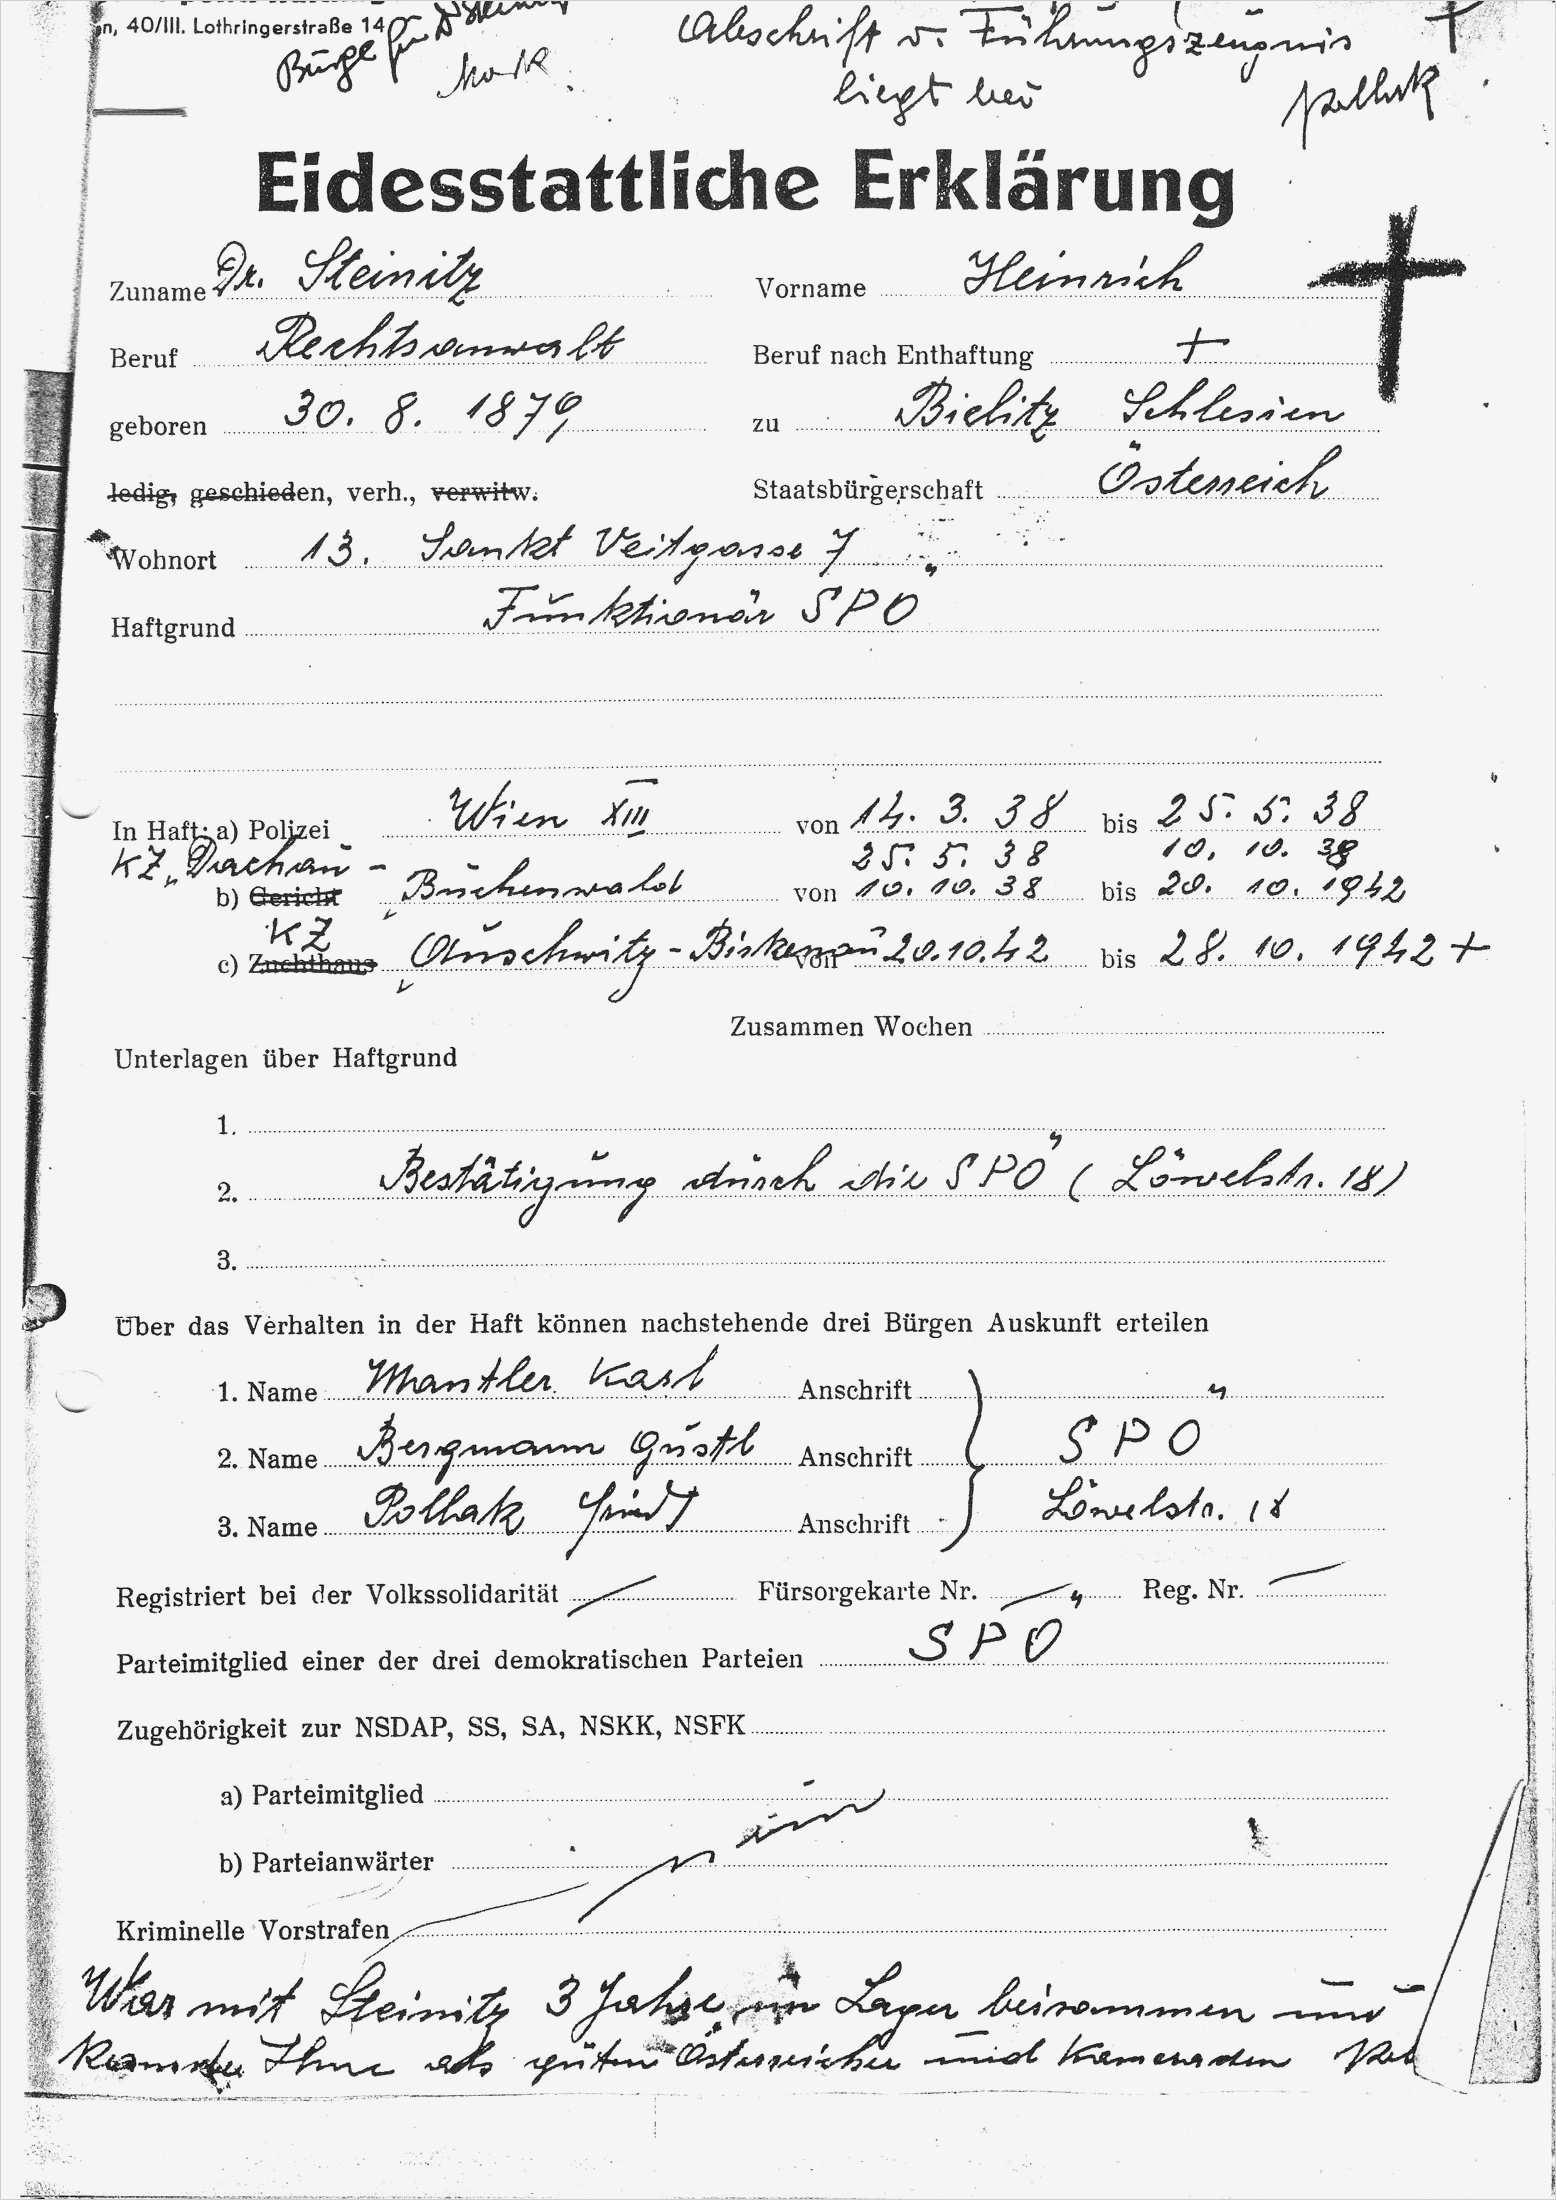 n, 40/III. Lothringerstraße 14
Bürge für D Steinitz
Abschrift v. Führungszeugnis
liegt bei
Pollak
Eidesstattliche Erklärung
Zuname Dr. Steinitz Vorname Heinrich
Beruf Rechtsanwalt Beruf nach Enthaftung +
geboren 30. 8. 1879 zu Bielitz Schlesien
ledig, geschieden, verh., verwitw. Staatsbürgerschaft Österreich
Wohnort 13. Sankt Veitgasse 7
Haftgrund Funktionär SPÖ
In Haft: a) Polizei Wien XIII von 14. 3. 38 bis 25. 5. 38
KZ „Dachau - 25. 5. 38 10. 10. 38
b) Gericht Buchenwald von 10. 10. 38 bis 20. 10. 1942
KZ
c) Zuchthaus Auschwitz-Birkenau von 20.10.42 bis 28. 10. 1942 +
Zusammen Wochen
Unterlagen über Haftgrund
1.
2. Bestätigung durch die SPÖ (Löwelstr. 18)
3.
Über das Verhalten in der Haft können nachstehende drei Bürgen Auskunft erteilen
1. Name Mantler Karl Anschrift
2. Name Bergmann Gustl Anschrift SPÖ
3. Name Pollak Anschrift Löwelstr. 18
Registriert bei der Volkssolidarität Fürsorgekarte Nr. Reg. Nr.
Parteimitglied einer der drei demokratischen Parteien SPÖ
Zugehörigkeit zur NSDAP, SS, SA, NSKK, NSFK
a) Parteimitglied
nein
b) Parteianwärter
Kriminelle Vorstrafen
War mit Steinitz 3 Jahre im Lager beisammen und
kannte Ihne als guten Österreicher und Kameraden